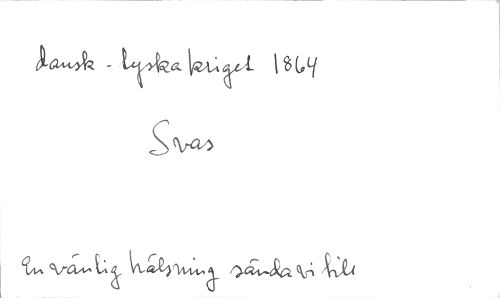 dansk - tyska kriget 1864
Svas
En vänlig hälsning sända vi till